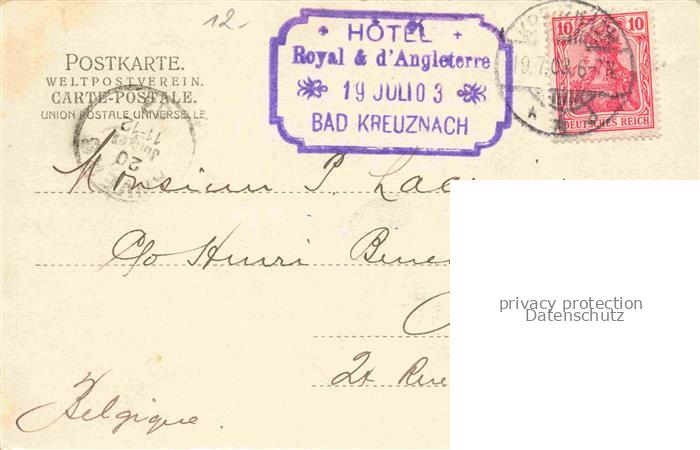 12.-
POSTKARTE.
WELTPOSTVEREIN.
CARTE-POSTALE.
UNION POSTALE UNIVERSELLE
HÔTEL
Royal & d'Angleterre
19 JULI 03
BAD KREUZNACH
10 10
DEUTSCHES REICH
19.7.03.6-7N.
11-12
20
Monsieur P.
C/o Henri
21 Rue
Belgique.
privacy protection
Datenschutz